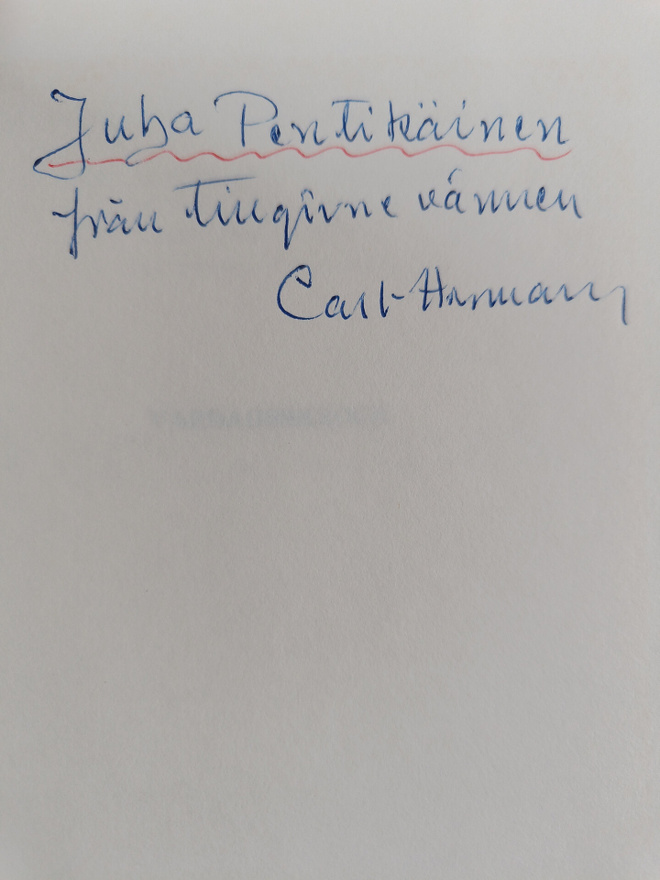 Juha Pentikäinen
från tillgivne vännen
Carl-Herman